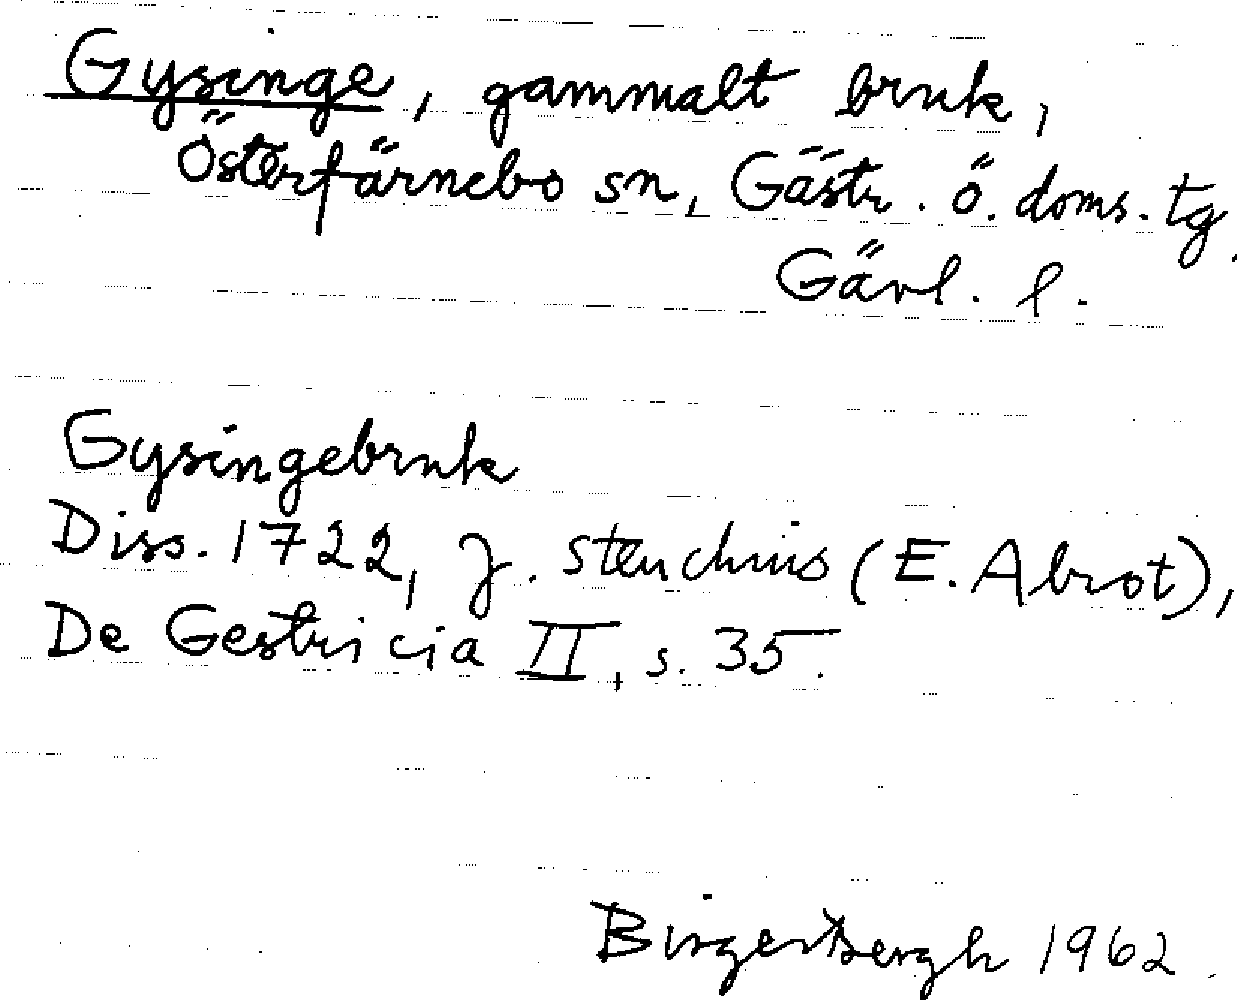 Gysinge, gammalt bruk,
Österfärnebo sn, Gästr. ö. doms. tg.
Gävl. l.
Gysingebruk
Diss. 1722, J. Stenchius (E. Abrot),
De Gestricia II, s. 35.
Birger Bergh 1962.